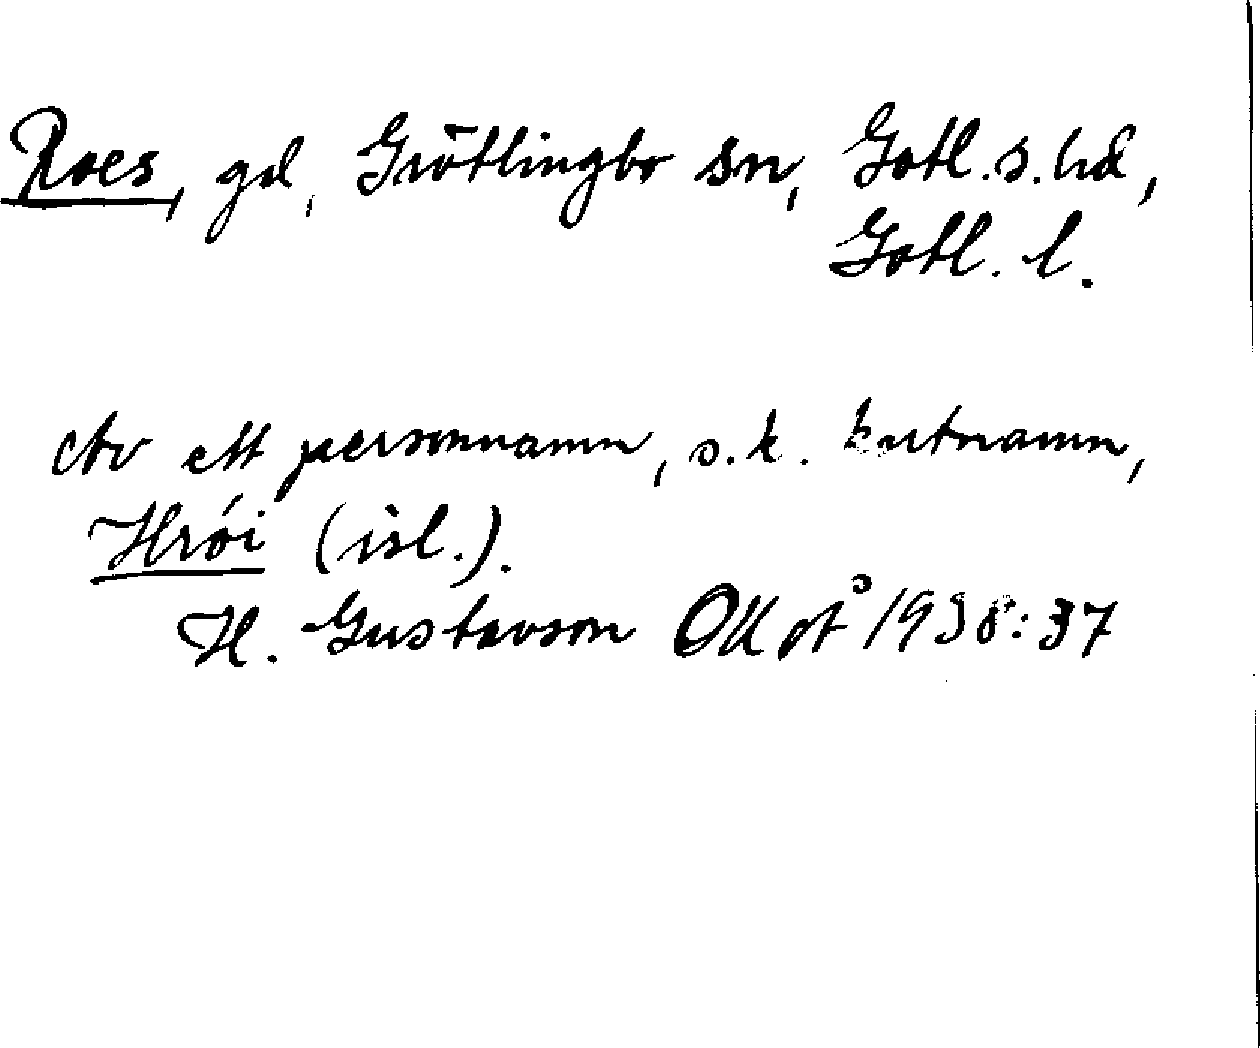 Roes, gd, Grötlingbo sn, Gotl. s. hd,
Gotl. l.
Av ett personnamn, s.k. kortnamn,
Hrói (isl.).
H. Gustavson OUpå 1938:37